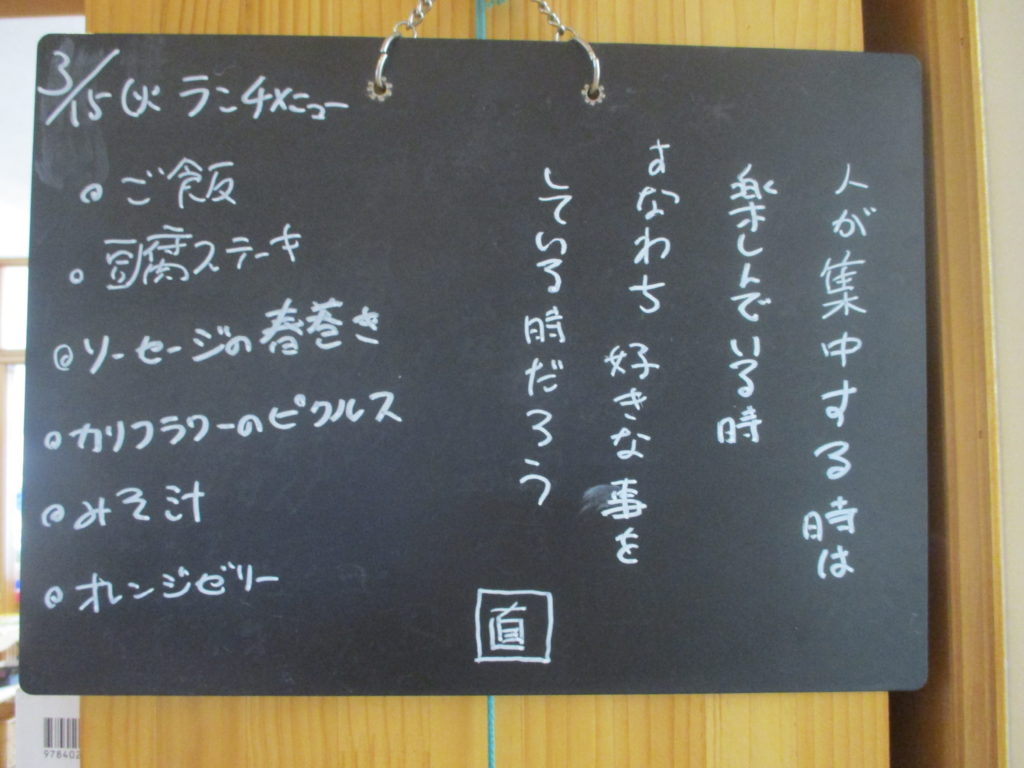 3/15(火 ランチメニュー
ご飯
豆腐ステーキ
ソーセージの春巻き
カリフラワーのピクルス
みそ汁
オレンジゼリー
人が集中する時は
楽しんでいる時
すなわち 好きな事を
している時だろう
直
978402